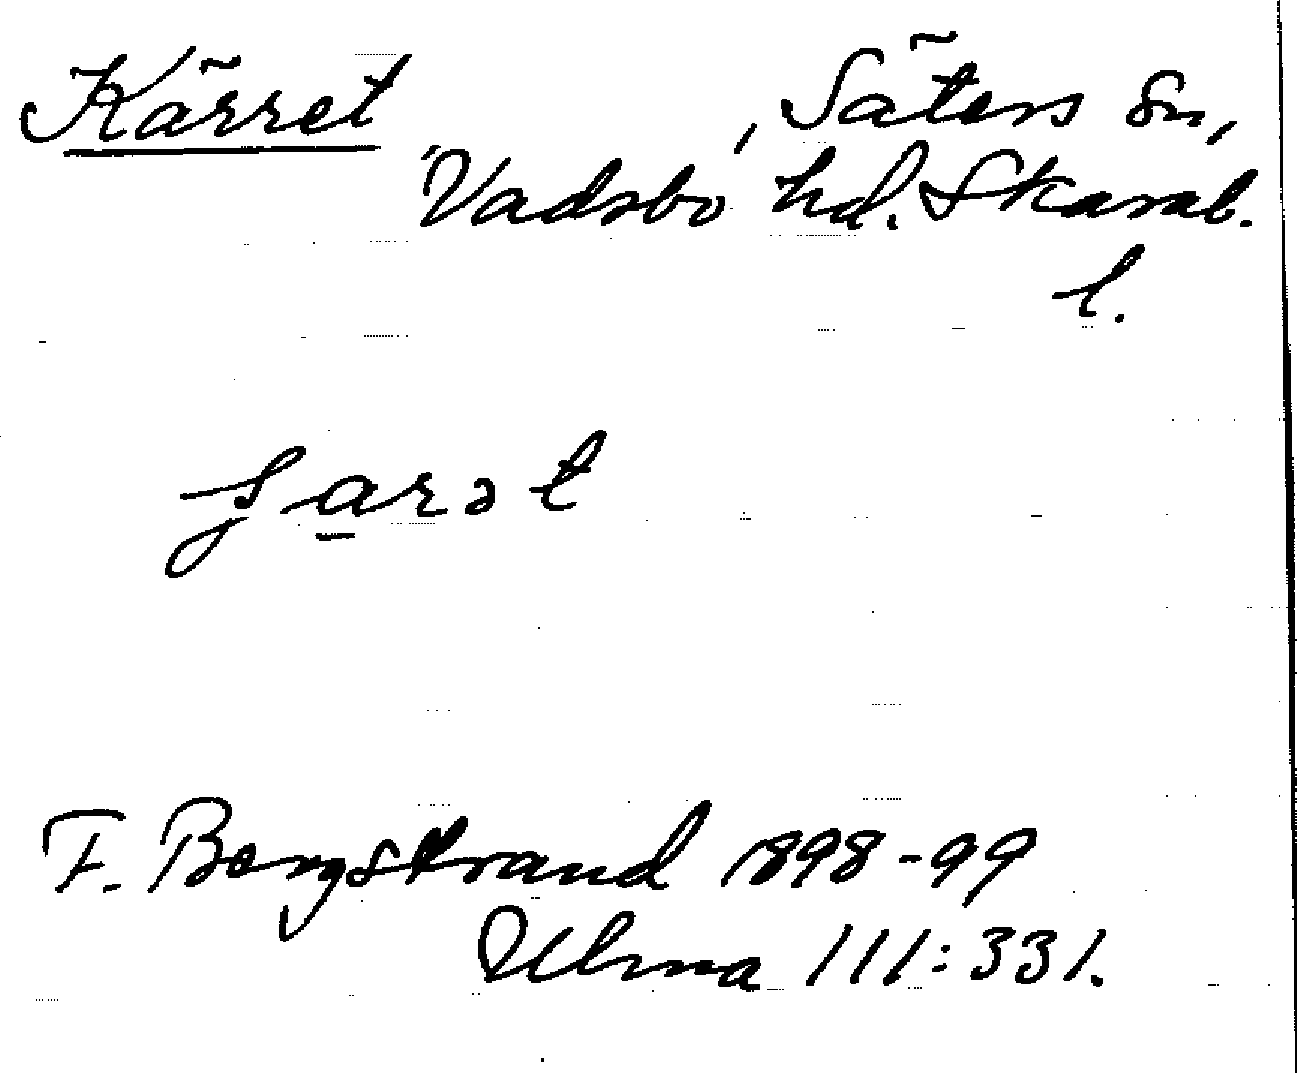 Kärret , Säters Sn,
Vadsbo hd. Skarab.
l.
F. Bergstrand 1898-99
Ulma 111:331.